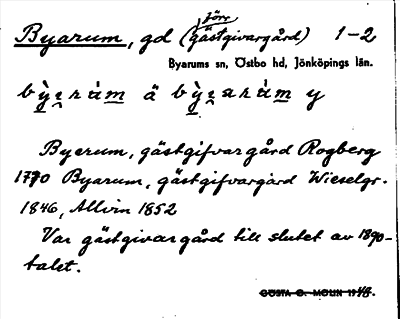 Byarum, gd (förr gästgivargård) 1-2
Byarums sn, Östbo hd, Jönköpings län.
Byerum, gästgifvargård Rogberg
1770 Byarum, gästgifvargård Wieselgr.
1846, Allvin 1852
Var gästgivargård till slutet av 1890-
talet.
GÖSTA C. MOLIN 1948.